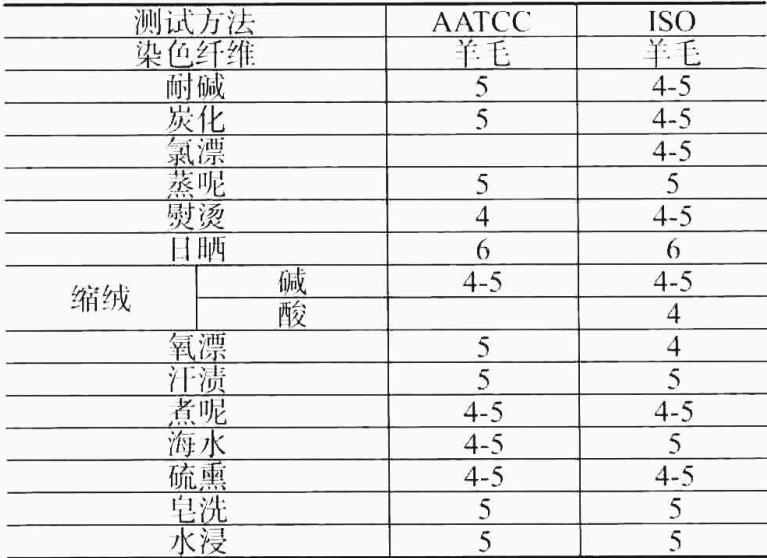 测试方法 AATCC ISO
染色纤维 羊毛 羊毛
耐碱 5 4-5
炭化 5 4-5
氯漂 4-5
蒸呢 5 5
熨烫 4 4-5
日晒 6 6
缩绒 碱 4-5 4-5
酸 4
氧漂 5 4
汗渍 5 5
煮呢 4-5 4-5
海水 4-5 5
硫熏 4-5 4-5
皂洗 5 5
水浸 5 5